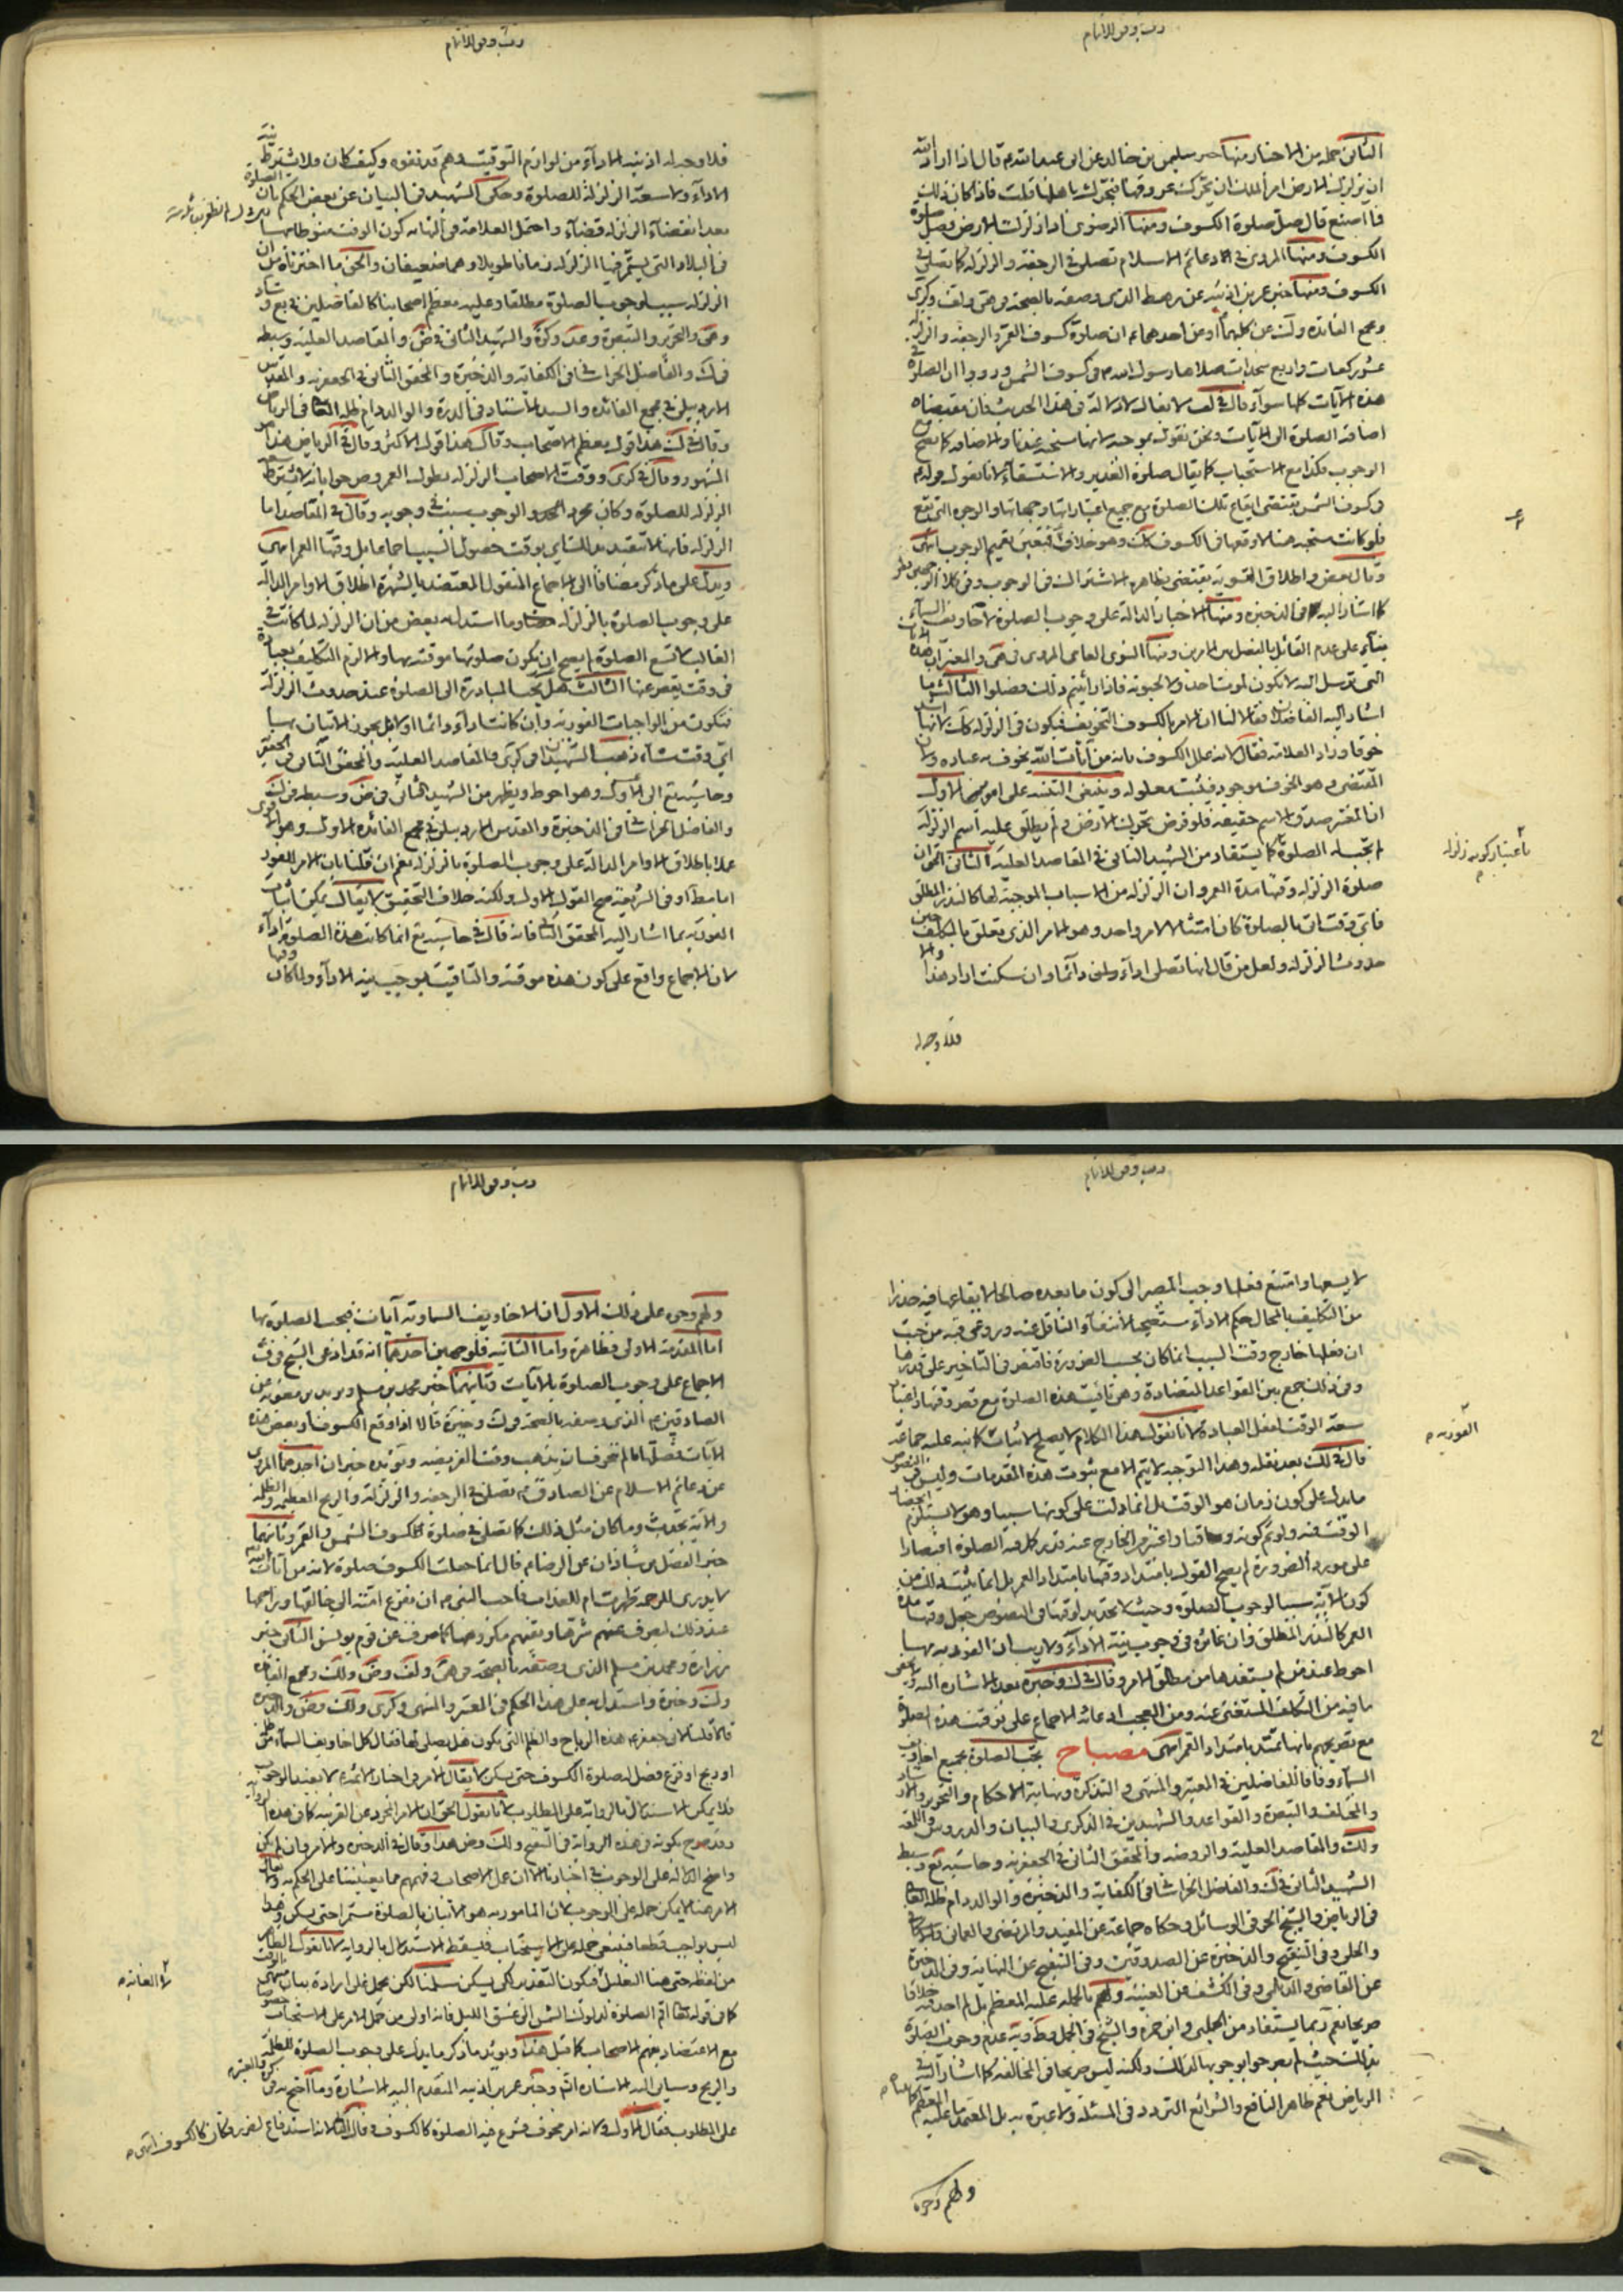 وقف وقفى للانام
الثانى جملة من الاخبار منها خبر سليمن بن خالد عن ابى عبد الله م قال اذا اراد الله
ان يزلزل الارض امر الملك ان يحرك عروقها فتحرك باهلها قلت فاذا كان ذلك
فما اصنع قال صل صلوة الكسوف ومنها الرضوى اذا زلزلت الارض فصل صلوة
الكسوف ومنها المروى فى الدعائم الاسلام تصلى فى الرجفة والزلزلة كما تصلى فى
الكسوف ومنها خبر عمر بن اذينه عن رهط الذى وصفه بالصحة فى هى ولف وكرى
ومجمع الفائدة ولك عن كليهما او عن احدهما ان صلوة كسوف القمر والرجفة والزلزلة
عشر ركعات واربع سجدات صلاها رسول الله م فى كسوف الشمس ورووا ان الصلوة فى
هذه الآيات كلها سواء قال فى لف لا يقال لا دلالة فى هذا الحديث فان مقتضاه
اضافة الصلوة الى الآيات ونحن نقول بموجبه لانها مستحبة عندنا والاضافة كما تصح مع
الوجوب فكذا مع الاستحباب كما يقال صلوة الغدير والاستسقاء لانا نقول قوله م
فى كسوف الشمس يقتضى ايقاع تلك الصلوة مع جميع اعتباراتها وجهاتها والوجوه التى تقع
فلو كانت مستحبة هنا لاوقعها فى الكسوف كك وهو خلاف فتعين تعميم الوجوب انتهى
وقال بعض واطلاق التسوية يقتضى بظاهره الاشتراك فى الوجوب وفى كلا الوجهين نظر
كما اشار اليه فى الذخيرة ومنها الاخبار الدالة على وجوب الصلوة لاخاويف السماء
بناء على عدم القائل بالفصل بين الامرين ومنها النبوى العامى المروى فى هى والمعتبر ان هذه الآيات
التى ترسل الله لا تكون لموت احد ولا لحيوته فاذا رأيتم ذلك فصلوا الثالث ما
اشار اليه الفاضلان فقالا لنا ان الامر بالكسوف للتخويف فيكون فى الزلزلة كك لانها اشد
خوفا وزاد العلامة فقال لانه علل الكسوف بانه من آيات الله يخوف به عباده ولان
المقتضى وهو الخوف موجود فيثبت معلوله وينبغى التنبيه على امور الاول
ان المعتبر صدق الاسم حقيقة فلو فرض تحرك الارض ولم يطلق عليه اسم الزلزلة
لم تجب له الصلوة كما يستفاد من الشهيد الثانى فى المقاصد العلية الثانى الحق ان
صلوة الزلزلة وقتها مدة العمر وان الزلزلة من الاسباب الموجبة لها كالنذر المطلق
فاى وقت اتى بالصلوة كان ممتثلا لامر واحد وهو الامر الذى تعلق بالمكلف حين
حدوث الزلزلة ولعل من قال انها تصلى اداء ولمن دائما وان سكنت اراد هذا والا
فلا وجه له
باعتبار كونه زلزلة
وقف وقفى للانام
فلا وجه له اذ نية الاداء من لوازم التوقيت وهم قد نفوه وكيف كان فلا يشترط نية
الاداء ولا سعة الزلزلة للصلوة وحكى الشهيد فى البيان عن بعض الحكم بان الصلوة
بعد انقضاء الزلزلة قضاء واحتمل العلامة فى النهاية كون الوقت منوطا بها
فى البلاد التى يستمر فيها الزلزلة زمانا طويلا وهما ضعيفان والحق ما اخترناه من ان
الزلزلة سبب لوجوب الصلوة مطلقا وعليه معظم اصحابنا كالفاضلين فى يع وشاد
وهى والتحرير والتبصرة وعد وكرة والشهيد الثانى فى ض والمقاصد العلية وسبطه
فى ك والفاضل الخراسانى فى الكفاية والذخيرة والمحقق الثانى فى الجعفرية والمقدس
الاردبيلى فى مجمع الفائدة والسيد الاستاد فى الدرة والوالد دام ظله العالى فى الرياض
وقال فى ك هذا قول معظم الاصحاب وقال هذا قول الاكثر وقال فى الرياض هذا هو
المشهور وقال فى كرى ووقت الاصحاب الزلزلة بطول العمر وصرحوا بانه لا يشترط سعة
الزلزلة للصلوة وكان مجرد الوجود سبب فى وجوبه وقال فى المقاصد اما
الزلزلة فانها لا تتقيد بذلك بوقت حصول السبب اجماعا بل وقتها العمر انتهى
ويدل على ما ذكر مضافا الى الاجماع المنقول المعتضد بالشهرة اطلاق الاوامر الدالة
على وجوب الصلوة بالزلزلة وما استدل به بعض من ان الزلزلة لما كانت فى
الغالب لا تسع الصلوة لم يصح ان يكون صلوتها موقتة بها والا لزم التكليف بعبادة
فى وقت يقصر عنها الثالث هل يجب المبادرة الى الصلوة عند حدوث الزلزلة
فيكون من الواجبات الفورية وان كانت اداء دائما او لا بل يجوز الاتيان بها
اى وقت شاء ذهب الشهيدان فى كرى والمقاصد العلية والمحقق الثانى فى الجعفرية
وحاشية يع الى الاول وهو احوط ويظهر من الشهيد الثانى فى ض وسبطه فى ك
والفاضل الخراسانى فى الذخيرة والمقدس الاردبيلى فى مجمع الفائدة الاول وهو اقوى
عملا باطلاق الاوامر الدالة على وجوب الصلوة بالزلزلة نعم ان قلنا بان الامر للفور
اما مطلقا او فى الشريعة صح القول الاول ولكنه خلاف التحقيق لا يقال يمكن اثبات
الفورية بما اشار اليه المحقق الثانى فانه قال فى حاشية يع انما كانت هذه الصلوة اداء
لان الاجماع واقع على كون هذه موقتة والتاقيت يوجب نية الاداء ولما كان وقتها
وقف وقفى للانام
لا يسعها وامتنع فعلها وجب المصير الى كون ما بعده صالحا لايقاعها فيه حذرا
من التكليف بالمحال حكم الاداء مستصحب لانتفاء الناقل عنه وروعى فيه من حيث
ان فعلها خارج وقت السبب انما كان بحسب الضرورة فاقتصر فى التاخير على قدرها
وفى ذلك جمع بين القواعد المتضادة وهى تاقيت هذه الصلوة مع قصر وقتها واعتبار
سعة الوقت لفعل العبادة لانا نقول هذا الكلام لا يصلح للاثبات كما نبه عليه جماعة
قال فى ك بعد نقله وهذا التوجيه لا يتم الا مع ثبوت هذه المقدمات وليس فى النصوص
ما يدل على كون زمان هو الوقت بل انما دلت على كونها سببا وهو لا يستلزم انحصار
الوقت فيه ولو تم كونه وقتا واغتفر الخارج عنه قدر كله الصلوة اقتصارا
على موضع الضرورة لم يصح القول بامتداد وقتها بامتداد العمر بل انما يثبت ذلك من
كون الآية سببا لوجوب الصلوة وحيث لا تحديد لوقتها فى النصوص جعل وقتها مدة
العمر كالنذر المطلق وان غايره فى وجوب نية الاداء ولا ريب ان الفورية بها
احوط عند من لم يستفدها من مطلق الامر وقال فى الذخيرة بعد الاشارة اليه ولا يخفى
ما فيه من التكلف المستغنى عنه ومن العجب ادعائه الاجماع على توقيت هذه الصلوة
مع تصريحهم بانها تمتد بامتداد العمر انتهى مصباح يجب الصلوة بجميع اخاويف
السماء وفاقا للفاضلين فى المعتبر والمنتهى والتذكرة ونهاية الاحكام والتحرير والارشاد
والمختلف والتبصرة والقواعد والشهيدين فى الذكرى والبيان والدروس واللمعة
ولك والمقاصد العلية والروضة والمحقق الثانى فى الجعفرية وحاشية يع وسبط
الشهيد الثانى فى ك والفاضل الخراسانى فى الكفاية والذخيرة والوالد دام ظله العالى
فى الرياض والشيخ الحر فى الوسائل وحكاه جماعة عن المفيد والمرتضى والعمانى والاسكافى
والحلى وفى التنقيح والذخيرة عن الصدوقين وفى التنقيح عن النهاية وفى الذخيرة
عن القاضى والديلمى وفى الكشف عن الغنية وبالجملة عليه المعظم بل لم اجد فيه خلافا
صريحا نعم ربما يستفاد من الحلبى وابن حمزه والشيخ فى الجمل وط وية عدم وجوب الصلوة
بذلك حيث لم يصرحوا بوجوبها لذلك ولكنه ليس صريحا فى المخالفة كما اشار اليه فى
الرياض نعم ظاهر النافع والشرائع التردد فى المسئلة ولا عبرة به بل المعتمد ما عليه المعظم
ولهم وجوه
الفورية م
وقف وقفى للانام
ولهم وجوه على ذلك الاول ان الاخاويف السماوية آيات فيجب الصلوة بها
اما المقدمة الاولى فظاهرة واما الثانية فلوجهين احدهما انه قد ادعى الشيخ فى ف
الاجماع على وجوب الصلوة بالآيات وثانيهما خبر محمد بن مسلم وبريد بن معوية عن
الصادقين م الذى وصفه بالصحة فى ك وخيرة قالا اذا وقع الكسوف او بعض هذه
الآيات فصلها ما لم تتخوف ان يذهب وقت الفريضة ويؤيده خبران احدهما المروى
عن دعائم الاسلام عن الصادق م تصلى فى الرجفة والزلزلة والريح العظيمة والظلمة
والآية تحدث وما كان مثل ذلك كما تصلى فى صلوة الكسوف الشمس والقمر وثانيهما
خبر الفضل بن شاذان عن الرضا م قال انما جعلت الكسوف صلوة لانه من آيات الله
لا يدرى لرحمة ظهرت ام للعذاب فاحب النبى م ان تفزع امته الى خالقها وراحمها
عند ذلك ليصرف عنهم شرها ويقيهم مكروهها كما صرف عن قوم يونس الثانى خبر
زرارة ومحمد بن مسلم الذى وصفه بالصحة فى هى ولف وض ولك ومجمع الفائدة
ولك وخيرة واستدل به على هذا الحكم فى المعتبر والمنتهى وكرى ولك وض والذخيرة
قالا قلنا لابى جعفر م هذه الرياح والظلم التى تكون هل يصلى لها فقال كل اخاويف السماء من ظلمة
او ريح او فزع فصل له صلوة الكسوف حتى يسكن لا يقال الامر فى اخبار الائمة م لا يفيد الوجوب
فلا يمكن الاستدلال بالرواية على المطلوب لانا نقول الحق ان الامر المجرد عن القرينة كما فى هذه الرواية
وقد صرح بكونه فى هذه الرواية فى التنقيح ولك وض هذا وقال فى الذخيرة والامر وان لم يكن
واضح الدلالة على الوجوب فى اخبارنا الا ان عمل الاصحاب وفهمهم مما يعيننا على الحكم به لا يقال
الامر هنا لا يمكن حمله على الوجوب لان المامور به هو الاتيان بالصلوة مستمرا حتى يسكن وهذا
ليس بواجب قطعا فينبغى حمله على الاستحباب فيسقط الاستدلال بالرواية لانا نقول الظاهر
من لفظ حتى هنا التعليل فيكون التقدير لكى يسكن سلمنا لكن يحمل على ارادة بيان منتهى الوقت
كما فى قوله تعالى اقم الصلوة لدلوك الشمس الى غسق الليل فانه اولى من حمل الامر على الاستحباب خصوصا
مع الاعتضاد بفهم الاصحاب كما قيل هذا ويؤيد ما ذكر ما يدل على وجوب الصلوة للظلمة
والريح وسياتى اليه الاشارة انشاء وخبر عمر بن اذينه المتقدم اليه الاشارة وما احتج به فى
على المطلوب فقال الاول ولانه امر مخوف فشرع فيه الصلوة كالكسوف وقال الثانى لانه استدفاع لضرر فكان كالكسوف انتهى م
لا الغاية م